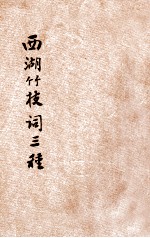 西湖竹枝词三種